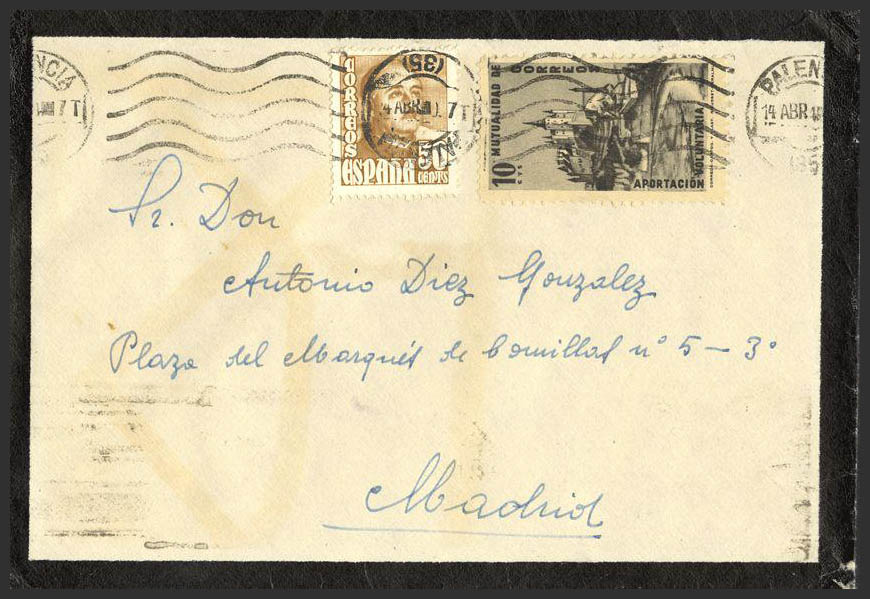 NCIA
7T
CORREOS
ESPAÑA
50
CENTS
(35)
4 ABR
7T
10
CTS
MUTUALIDAD DE
CORREOS
APORTACIÓN
VOLUNTARIA
PALEN
14 ABR
Sr. Don
Antonio Diez Gonzalez
Plaza del Marqués de Comillas nº 5 - 3º
Madrid